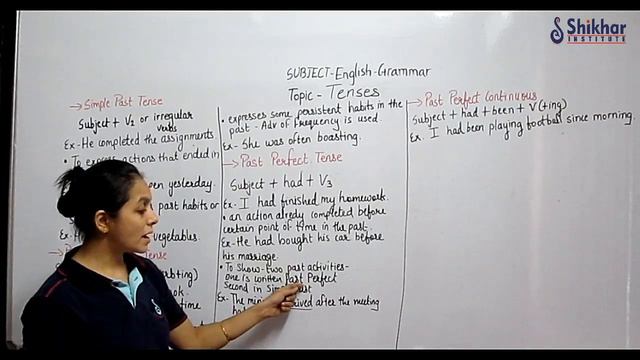 Shikhar
INSTITUTE
SUBJECT-English-Grammar
Topic - Tenses
→ Simple Past Tense
Subject + V2 or irregular
verbs
Ex- He completed the assignments.
• To express actions that ended in
yesterday.
past habits or
vegetables.
Tense
time
• expresses some persistent habits in the
past - Adv of frequency is used.
Ex- She was often boasting.
→ Past Perfect Tense
Subject + had + V3
Ex- I had finished my homework.
• an action already completed before
certain point of time in the past.
Ex- He had bought his car before
his marriage
• To show-two past activities-
one is written Past Perfect
Second in
Ex- The after the meeting
→ Past Perfect Continuous
Subject + had + been + V(+ing)
Ex. I had been playing football since morning.